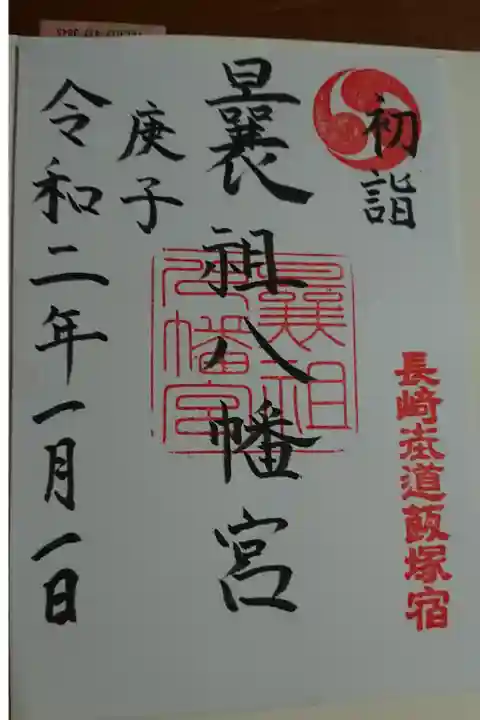 初詣
長崎街道飯塚宿
曩祖八幡宮
曩祖八幡宮
庚子
令和二年一月一日